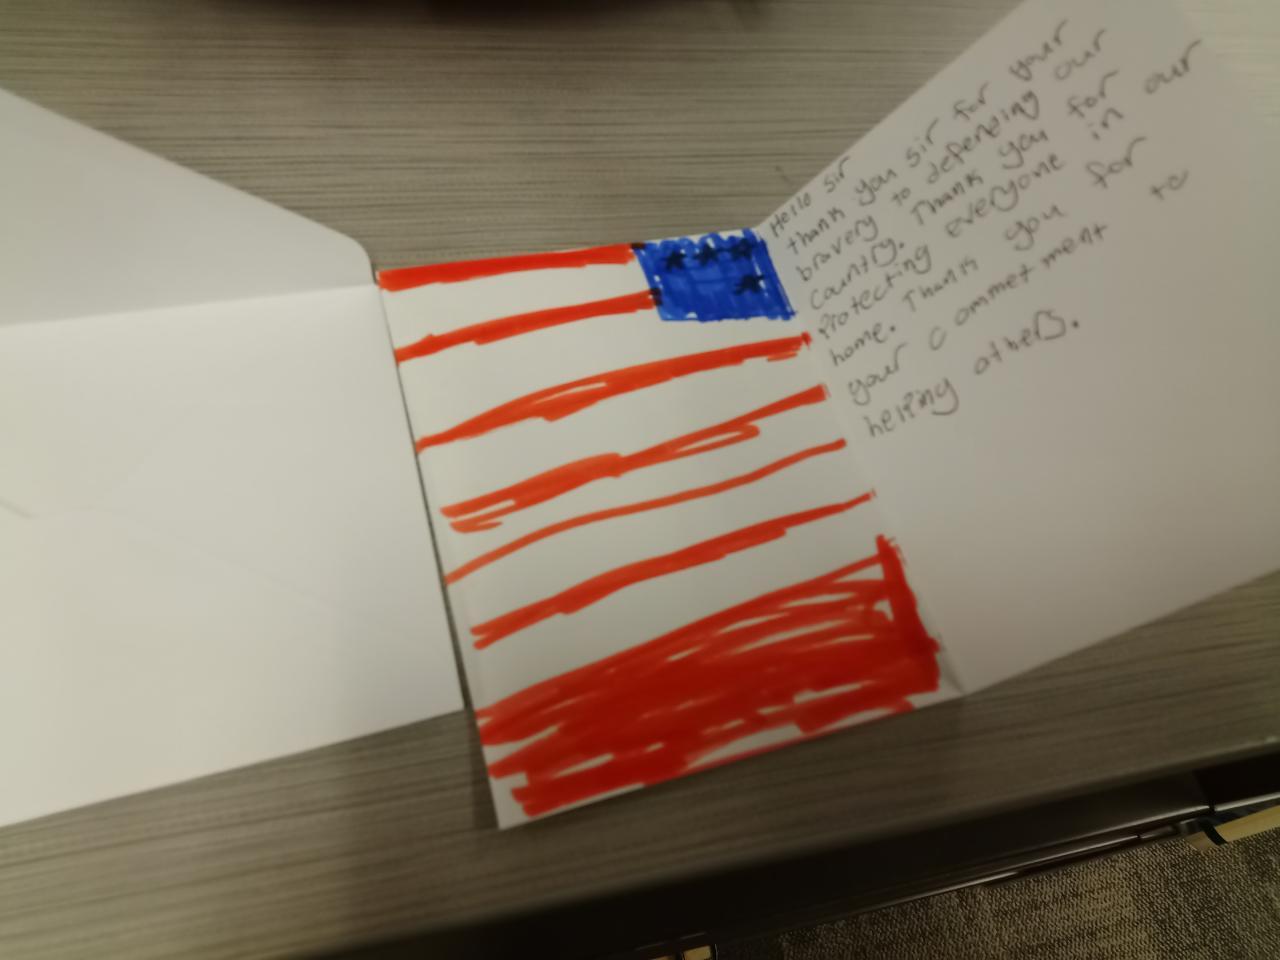 Hello sir
thank you sir for your
bravery to defending our
country. Thank you for
protecting everyone in our
home. Thank you for
your commetment to
helping others.